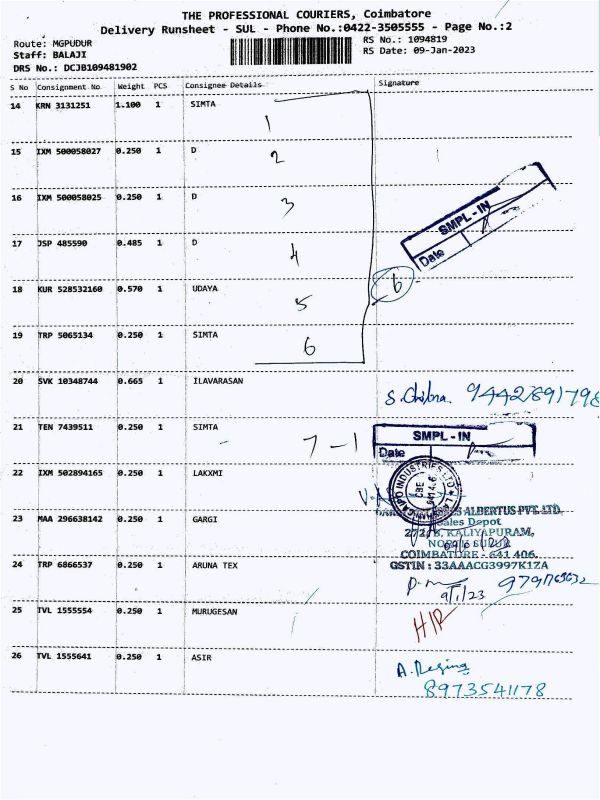 THE PROFESSIONAL COURIERS, Coimbatore
Delivery Runsheet - SUL - Phone No.:0422-3505555 - Page No.:2
Route: MGPUDUR
RS No.: 1094819
Staff: BALAJI
RS Date: 09-Jan-2023
DRS No.: DCJB109481902
S No Consignment No Weight PCS Consignee Details Signature
14 KRN 3131251 1.100 1 SIMTA
1
15 IXM 500058027 0.250 1 D
2
16 IXM 500058025 0.250 1 D
3
SMPL - IN
Date
17 JSP 485590 0.485 1 D
4
18 KUR 528532160 0.570 1 UDAYA
6
5
19 TRP 5065134 0.250 1 SIMTA
6
20 SVK 10348744 0.665 1 ILAVARASAN
21 TEN 7439511 0.250 1 SIMTA
7 - 1
SMPL - IN
Date
22 IXM 502894165 0.250 1 LAKXMI
ALBERTUS PVT. LTD.
23 MAA 296638142 0.250 1 GARGI
Sales Depot
KALIYAPURAM,
COIMBATORE - 641 406.
24 TRP 6866537 0.250 1 ARUNA TEX
GSTIN : 33AAACG3997K1ZA
9/1/23
25 TVL 1555554 0.250 1 MURUGESAN
26 TVL 1555641 0.250 1 ASIR
8973541178